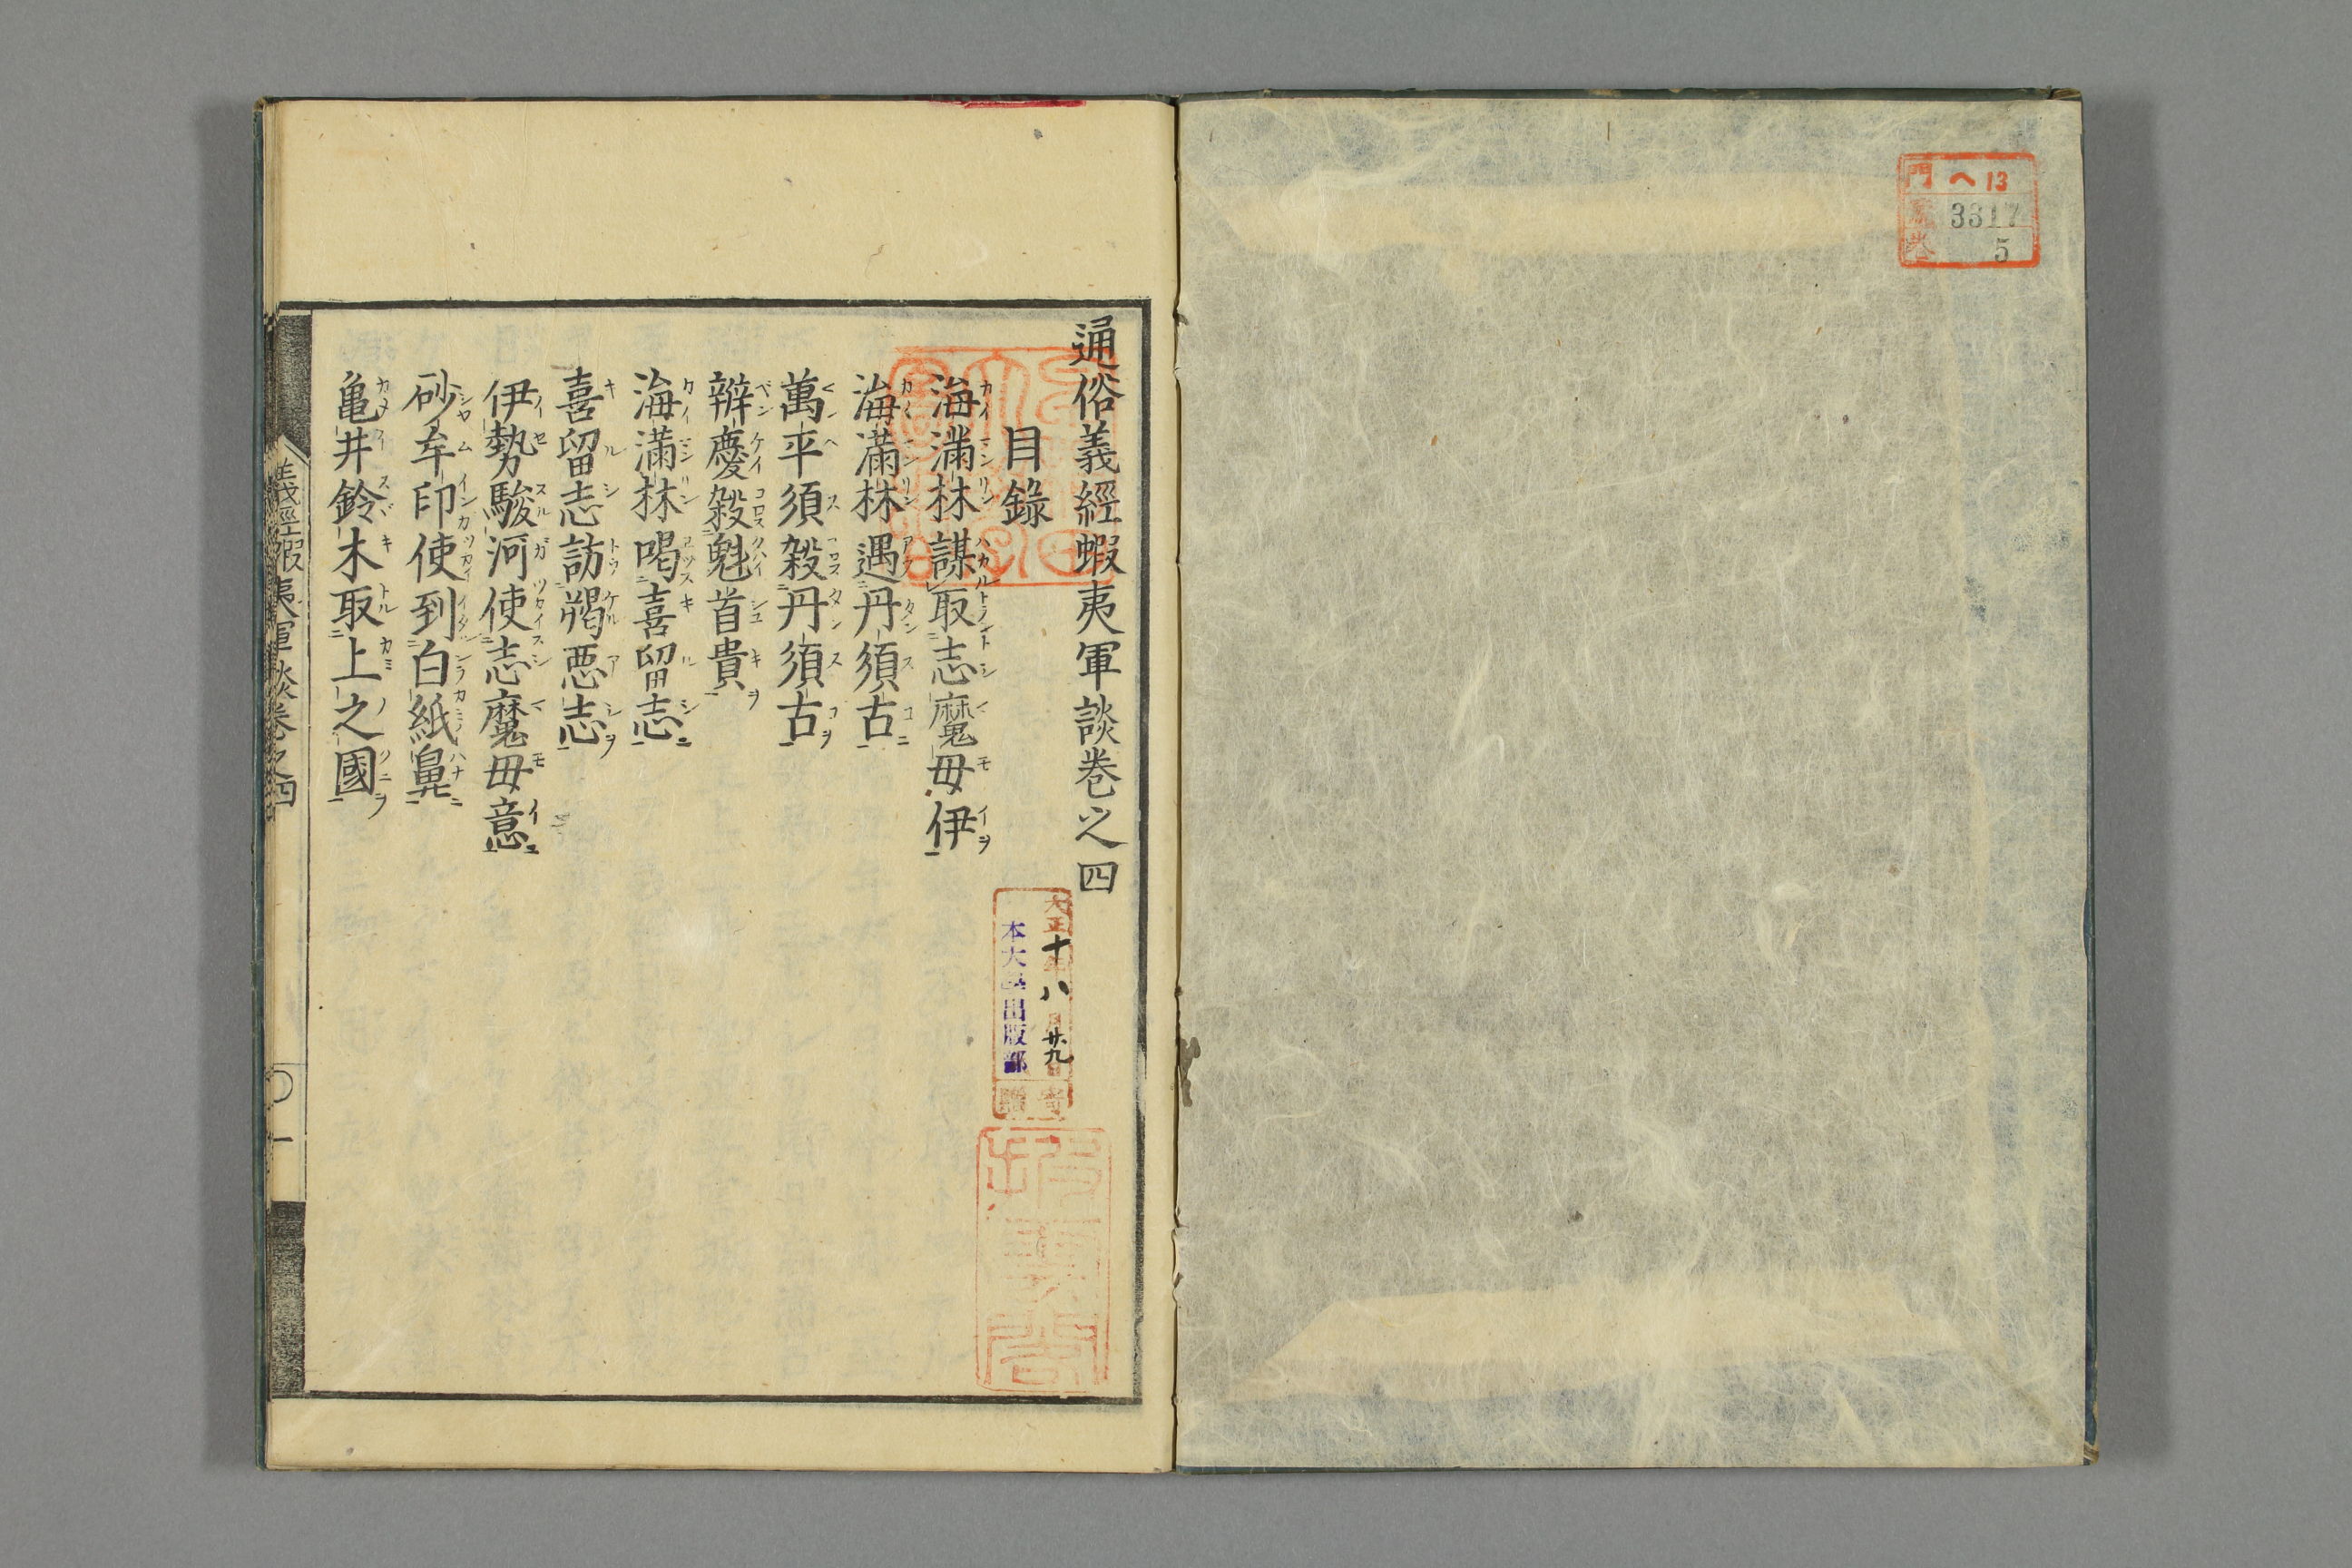 門 ヘ13
號 3317
巻 5
通俗義經蝦夷軍談巻之四
目錄
海滿林謀取志魔毋伊
海滿林遇丹須古
萬平須殺丹須古
辨慶殺魁首貴
海滿林喝喜留志
喜留志訪羯悪志
伊勢駿河使志魔毋意
砂牟印使到白紙鼻
亀井鈴木取上之國
大正十年八月廿九日
本大學出版部
寄贈
義經蝦夷軍談巻之四
一